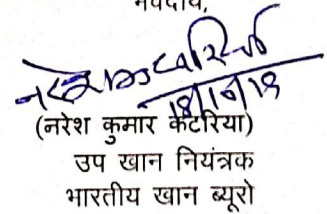 भवदीय,
18/10/19
(नरेश कुमार कटारिया)
उप खान नियंत्रक
भारतीय खान ब्यूरो